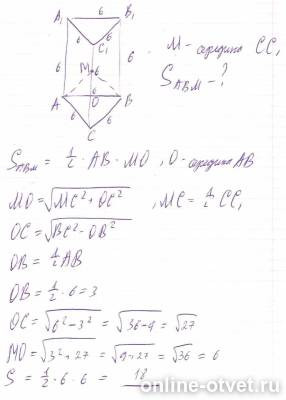 A₁ 6 B₁
6 6
C₁
6 M 6 6
A O B
6 6
C
M - середина CC₁
S_ABM - ?
S_ABM = 1/2 · AB · MO , O - середина AB
MO = √(MC² + OC²) , MC = 1/2 CC₁
OC = √(BC² - OB²)
OB = 1/2 AB
OB = 1/2 · 6 = 3
OC = √(6² - 3²) = √(36-9) = √27
MO = √(3² + 27) = √(9+27) = √36 = 6
S = 1/2 · 6 · 6 = 18
online-otvet.ru